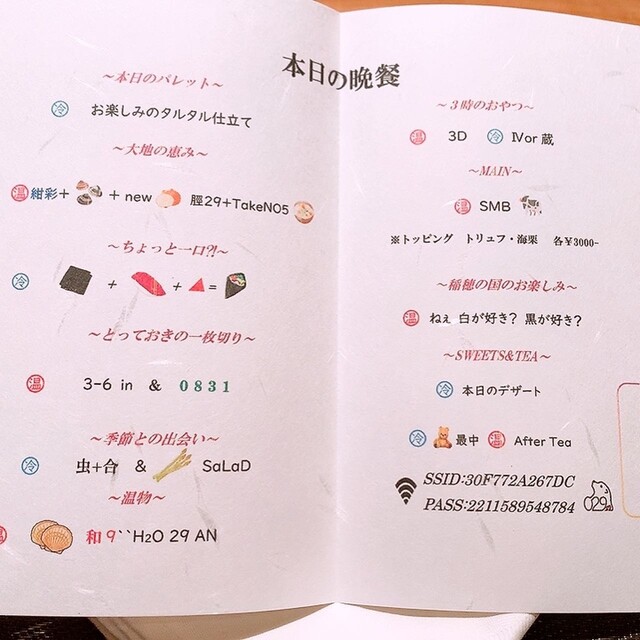 本日の晩餐
~本日のパレット~
冷 お楽しみのタルタル仕立て
~大地の恵み~
温 紺彩+ + new 脛29+TakeNO5
~ちょっと一口?!~
冷 + + =
~とっておきの一枚切り~
温 3-6 in & 0831
~季節との出会い~
冷 虫+合 & SaLaD
~温物~
温 和9``H2O 29 AN
~3時のおやつ~
温 3D 冷 IVor 蔵
~MAIN~
温 SMB
※トッピング トリュフ・海栗 各¥3000-
~稲穂の国のお楽しみ~
温 ねぇ 白が好き? 黒が好き?
~SWEETS&TEA~
冷 本日のデザート
冷 最中 温 After Tea
SSID:30F772A267DC
PASS:2211589548784
29